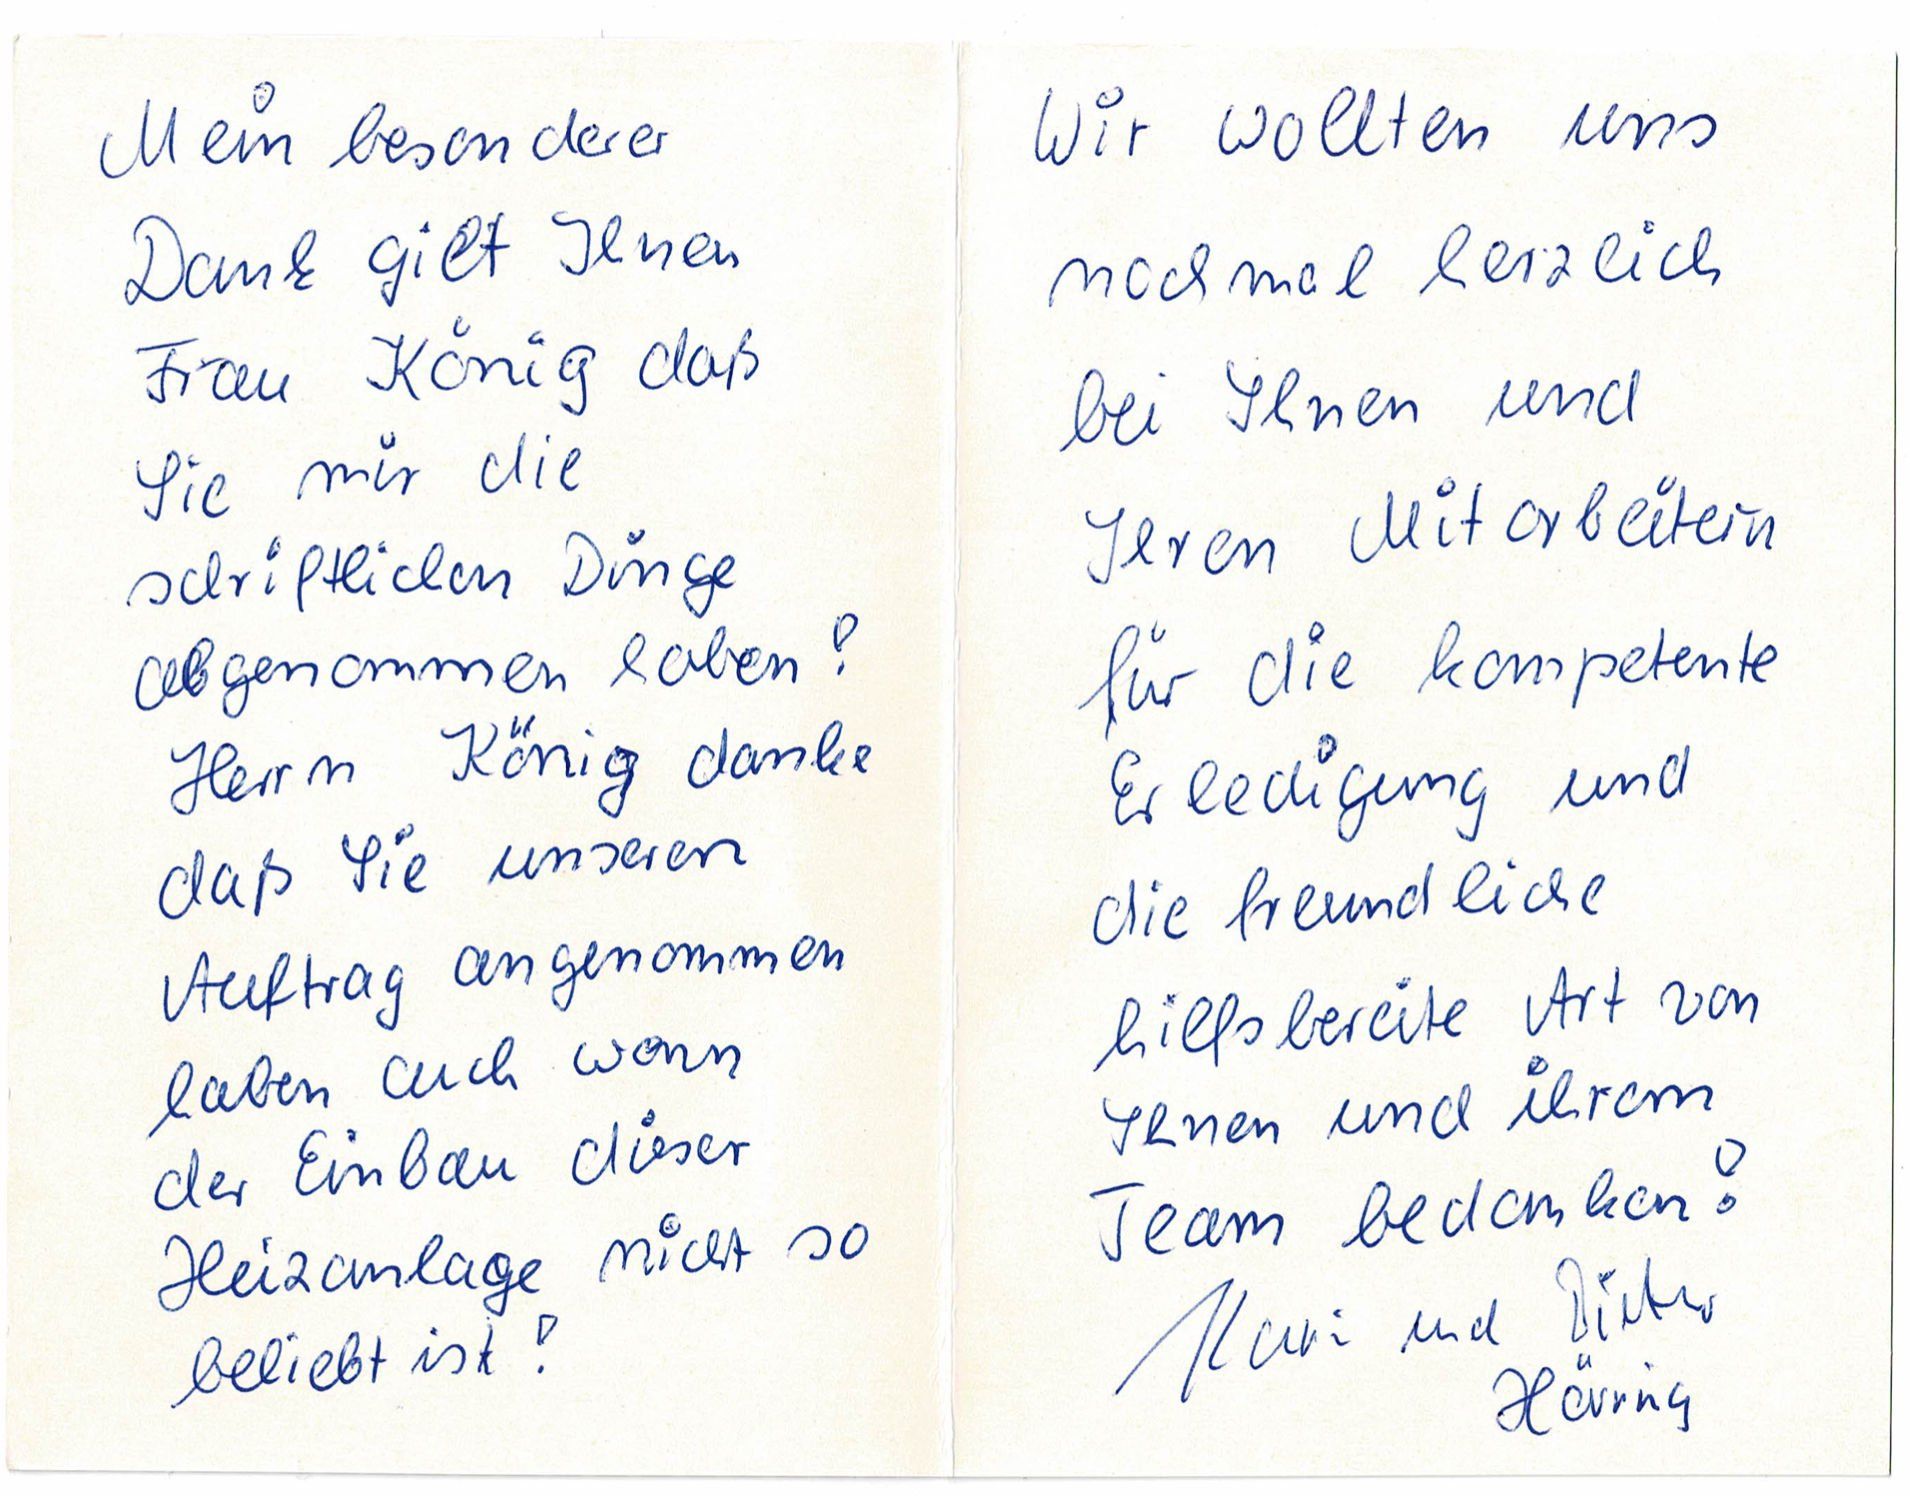 Mein besonderer
Dank gilt Ihnen
Frau König daß
Sie mir die
schriftlichen Dinge
abgenommen haben!
Herrn König danke
daß Sie unseren
Auftrag angenommen
haben auch wann
der Einbau dieser
Heizanlage nicht so
beliebt ist!
Wir wollten uns
nochmal herzlich
bei Ihnen und
Ihren Mitarbeitern
für die kompetente
Erledigung und
die freundliche
hilfsbereite Art von
Ihnen und ihrem
Team bedanken!
und Dieter
Häring